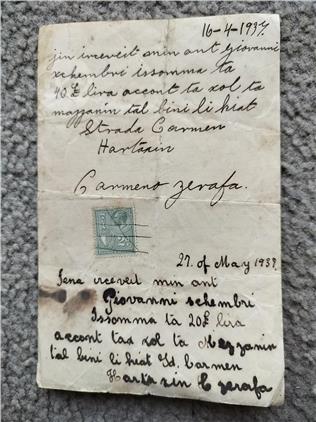 16-4-1937.
jin irceveit min ant giovanni
schembri issomma ta
40£ lira accont ta xol ta
mazzanin tal bini li hiat
Strada Carmen
Hartaxin
Carmeno zerafa.
27. of May 1937.
Jena irceveit min ant
Giovanni schembri
Issomma ta 20£ lira
accont tax xol ta Mezzanin
tal bini li hiat Sd. Carmen
Hartaxin C zerafa